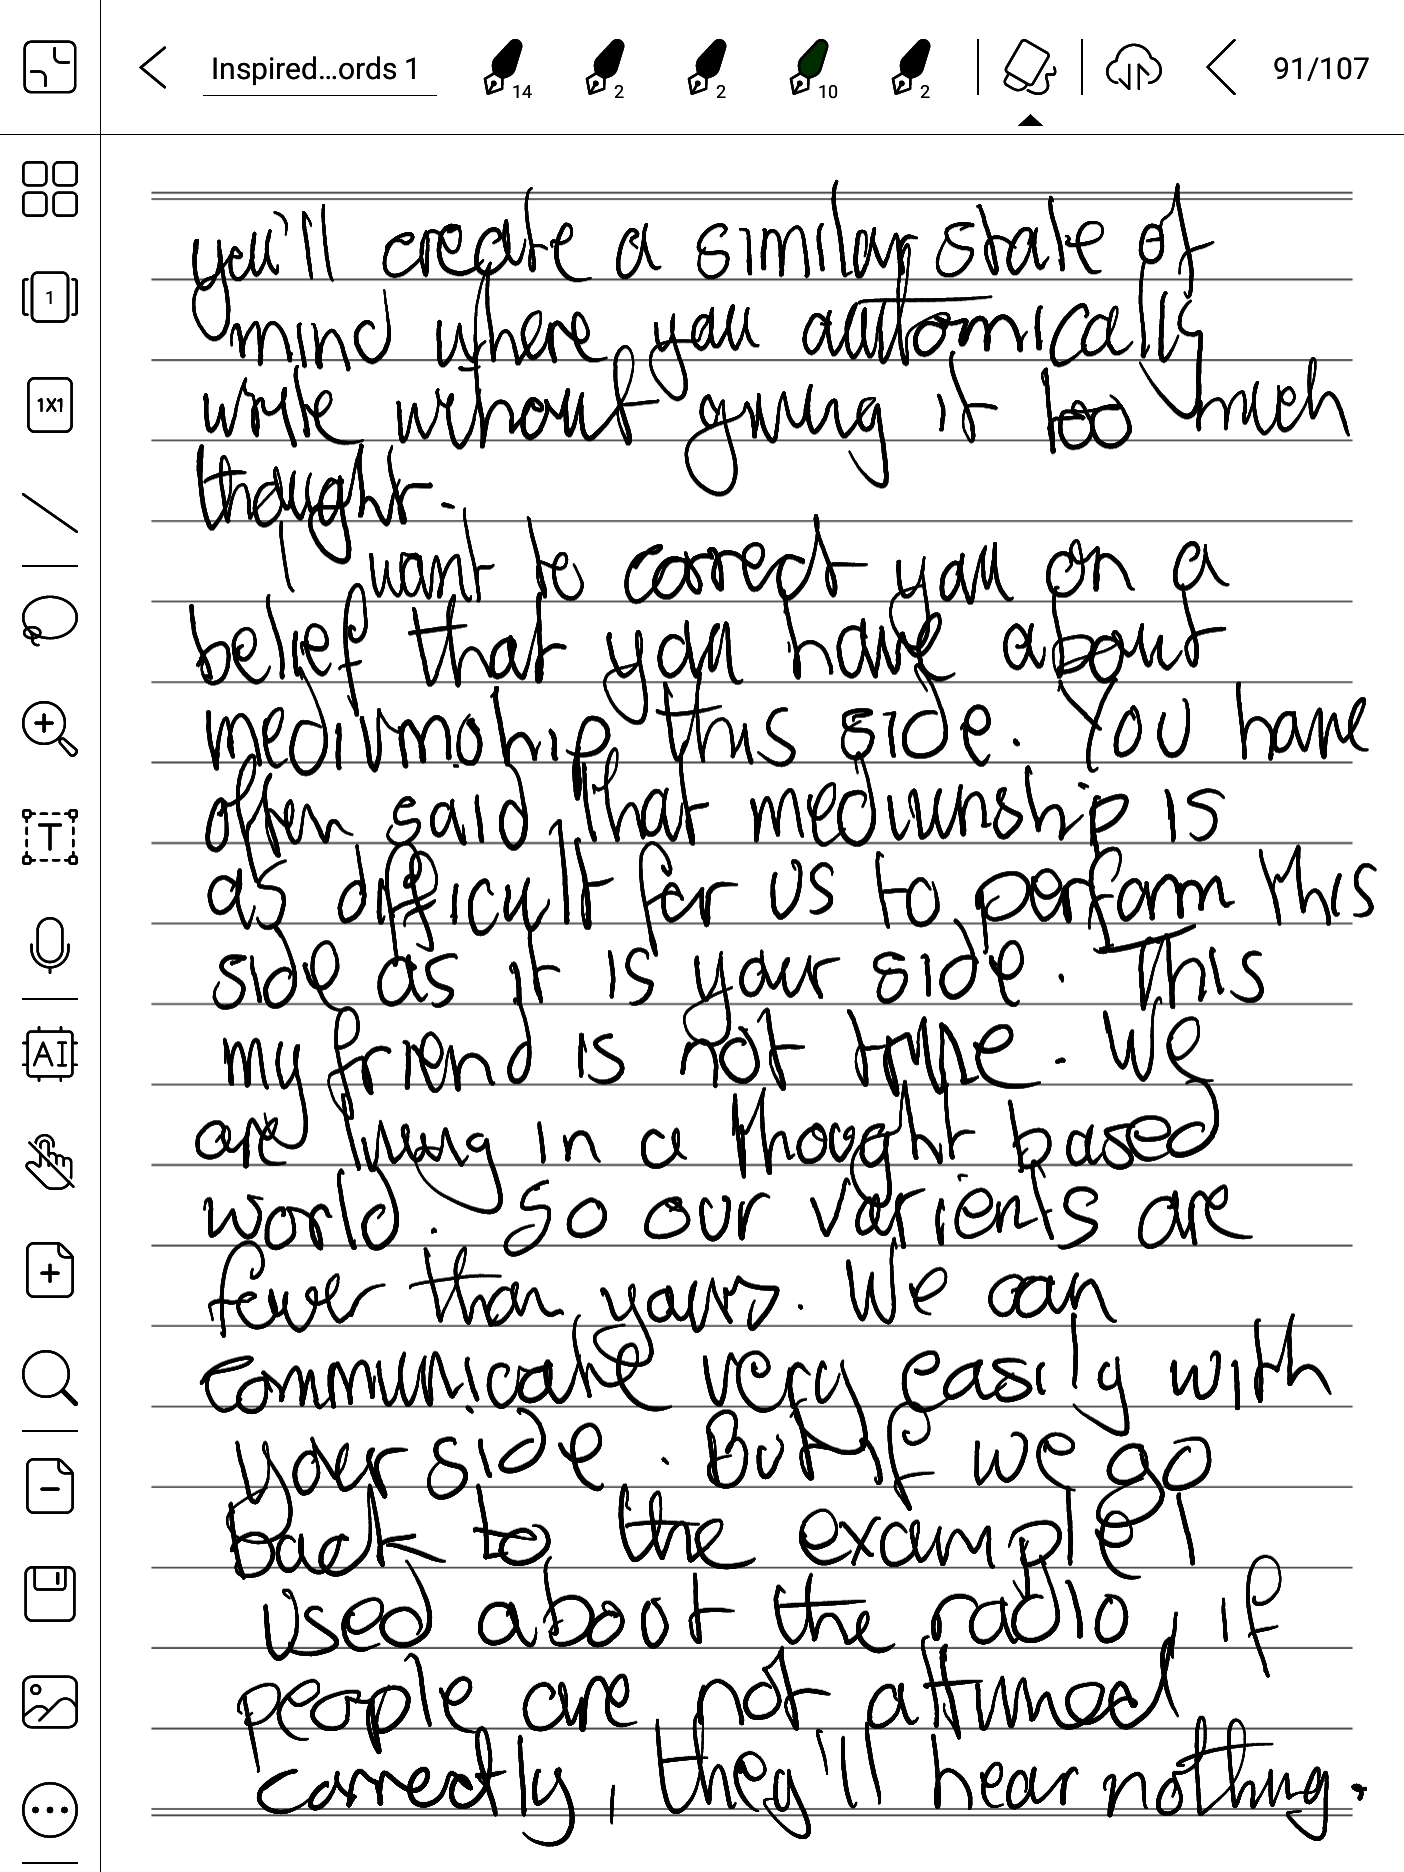 Inspired...ords 1
14
2
2
10
2
91/107
1
1X1
T
AI
you'll create a similar state of
mind where you automically
write without giving it too much
thought.
I want to correct you on a
belief that you have about
mediumship this side. You have
often said, that mediumship is
as difficult for us to perform this
side as it is your side. This
my friend is not true. We
are living in a thought based
world. So our varients are
fewer than yours. We can
communicate very easily with
your side. But if we go
back to the example I
used about the radio, if
people are not attuned
correctly, they'll hear nothing.